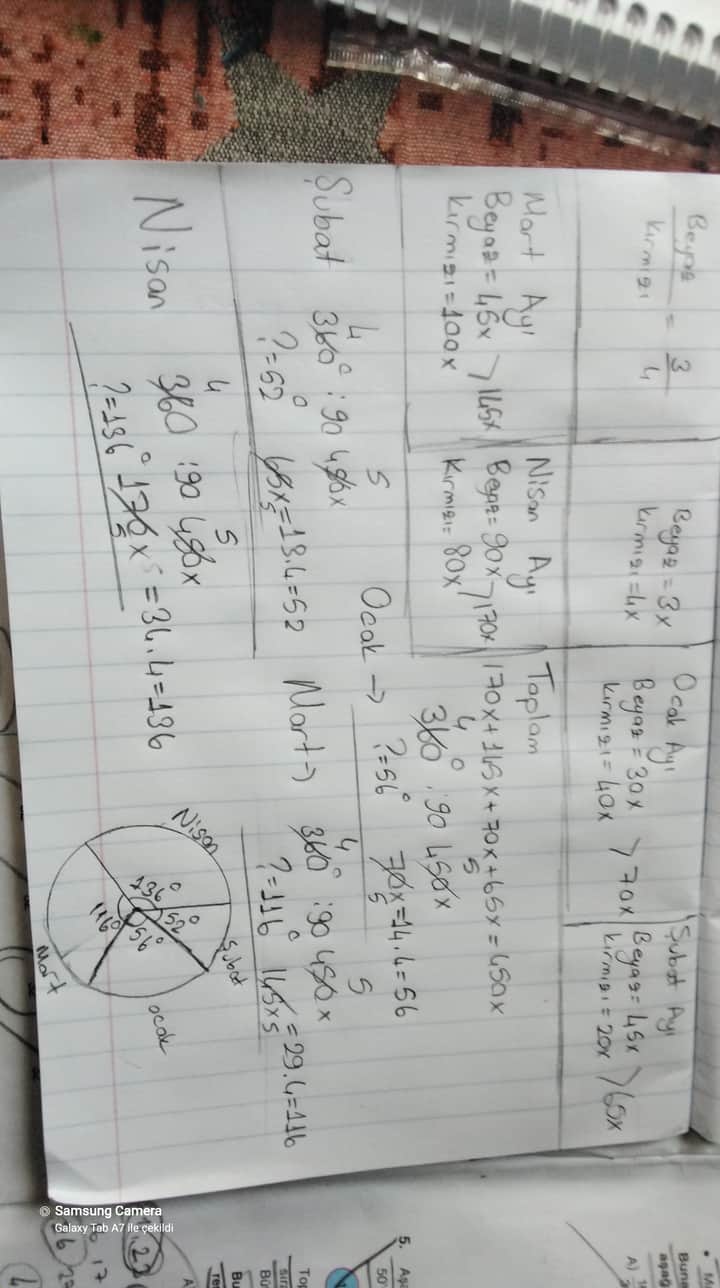 Beyaz
Kırmızı
=
3
4
Beyaz = 3x
Kırmızı = 4x
Ocak Ayı
Beyaz = 30x
Kırmızı = 40x
> 70x
Şubat Ayı
Beyaz = 45x
Kırmızı = 20x
> 65x
Mart Ayı
Beyaz = 45x
Kırmızı = 100x
> 145x
Nisan Ayı
Beyaz = 90x
Kırmızı = 80x
> 170x
Toplam
170x + 145x + 70x + 65x = 450x
Ocak →
4 5
360° :90 450x
?=56° 70x = 14.4 = 56
5
Şubat
4 5
360° :90 450x
?=52° 65x = 13.4 = 52
5
Mart →
4 5
360° :90 450x
?=116° 145x = 29.4 = 116
5
Nisan
4 5
360 :90 450x
?=136° 170x = 34.4 = 136
5
Nisan
Şubat
136°
52°
116°
56°
Mart
ocak
Samsung Camera
Galaxy Tab A7 ile çekildi
5.
50°
A)